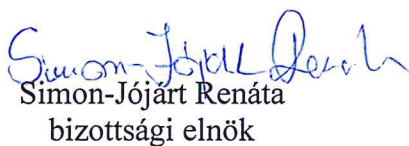 Simon-Jójárt Renáta
Simon-Jójárt Renáta
bizottsági elnök